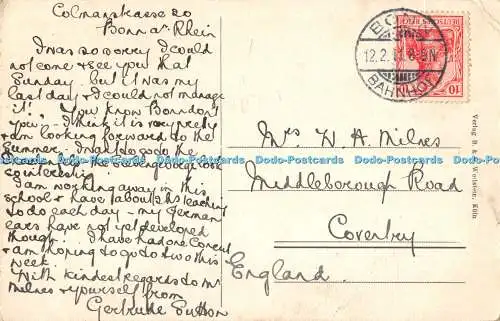 Colmanstrasse 20
Bonn a. Rhein
I was so sorry I could
not come & see you that
Sunday but it was my
last day & I could not manage
it! You know Bonn don't
you? I think it is very pretty
& am looking forward to the
Summer. I was to go to the
I am working away in this
school & have about 2 hrs teaching
to do each day – my German
ears have not yet developed
though. I have had one Concert
& am hoping to go to two this
week.
With kindest regards to Mr
Milnes & yourself from
Gertrude Sutton
BONN
12.2.11. 6-7N
BAHNHOF
DEUTSCHES REICH
10
Mrs W. A. Milnes
Middleborough Road
Coventry
England.
Dodo-Postcards Dodo-Postcards Dodo-Postcards Dodo-Postcards